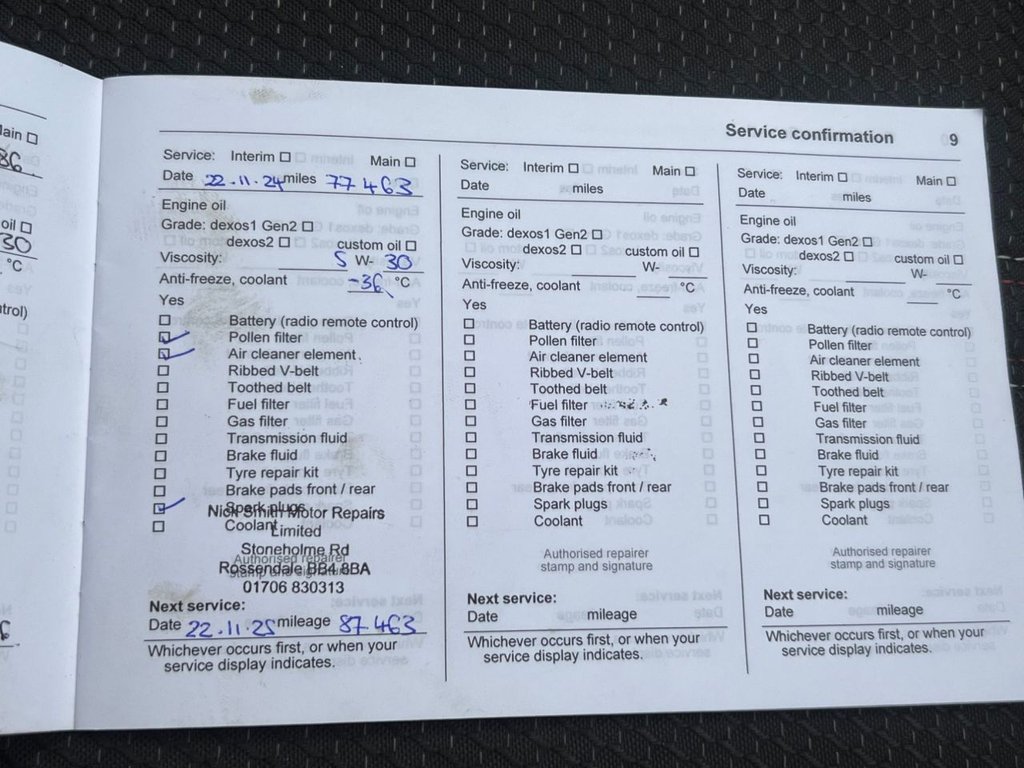 ain ☐
86
oil ☐
30
°C
trol)
6
Service confirmation 9
Service: Interim ☐ Main ☐
Date 22.11.24 miles 77463
Engine oil
Grade: dexos1 Gen2 ☐
dexos2 ☐ custom oil ☐
Viscosity: 5 W- 30
Anti-freeze, coolant -36 °C
Yes
☐ Battery (radio remote control)
☑ Pollen filter
☑ Air cleaner element
☐ Ribbed V-belt
☐ Toothed belt
☐ Fuel filter
☐ Gas filter
☐ Transmission fluid
☐ Brake fluid
☐ Tyre repair kit
☐ Brake pads front / rear
☑ Spark plugs
☐ Coolant
Nick Smith Motor Repairs
Limited
Stoneholme Rd
Rossendale BB4 8BA
01706 830313
Authorised repairer
stamp and signature
Next service:
Date 22.11.25 mileage 87463
Whichever occurs first, or when your
service display indicates.
Service: Interim ☐ Main ☐
Date miles
Engine oil
Grade: dexos1 Gen2 ☐
dexos2 ☐ custom oil ☐
Viscosity: W-
Anti-freeze, coolant °C
Yes
☐ Battery (radio remote control)
☐ Pollen filter
☐ Air cleaner element
☐ Ribbed V-belt
☐ Toothed belt
☐ Fuel filter
☐ Gas filter
☐ Transmission fluid
☐ Brake fluid
☐ Tyre repair kit
☐ Brake pads front / rear
☐ Spark plugs
☐ Coolant
Authorised repairer
stamp and signature
Next service:
Date mileage
Whichever occurs first, or when your
service display indicates.
Service: Interim ☐ Main ☐
Date miles
Engine oil
Grade: dexos1 Gen2 ☐
dexos2 ☐ custom oil ☐
Viscosity: W-
Anti-freeze, coolant °C
Yes
☐ Battery (radio remote control)
☐ Pollen filter
☐ Air cleaner element
☐ Ribbed V-belt
☐ Toothed belt
☐ Fuel filter
☐ Gas filter
☐ Transmission fluid
☐ Brake fluid
☐ Tyre repair kit
☐ Brake pads front / rear
☐ Spark plugs
☐ Coolant
Authorised repairer
stamp and signature
Next service:
Date mileage
Whichever occurs first, or when your
service display indicates.